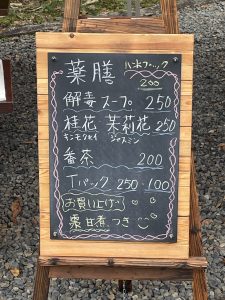 薬膳 ハンドブック
200
解毒スープ 250
桂花 茉莉花 250
キンモクセイ ジャスミン
番茶 200
Tパック 250・100
お買い上げ
甘煮つき